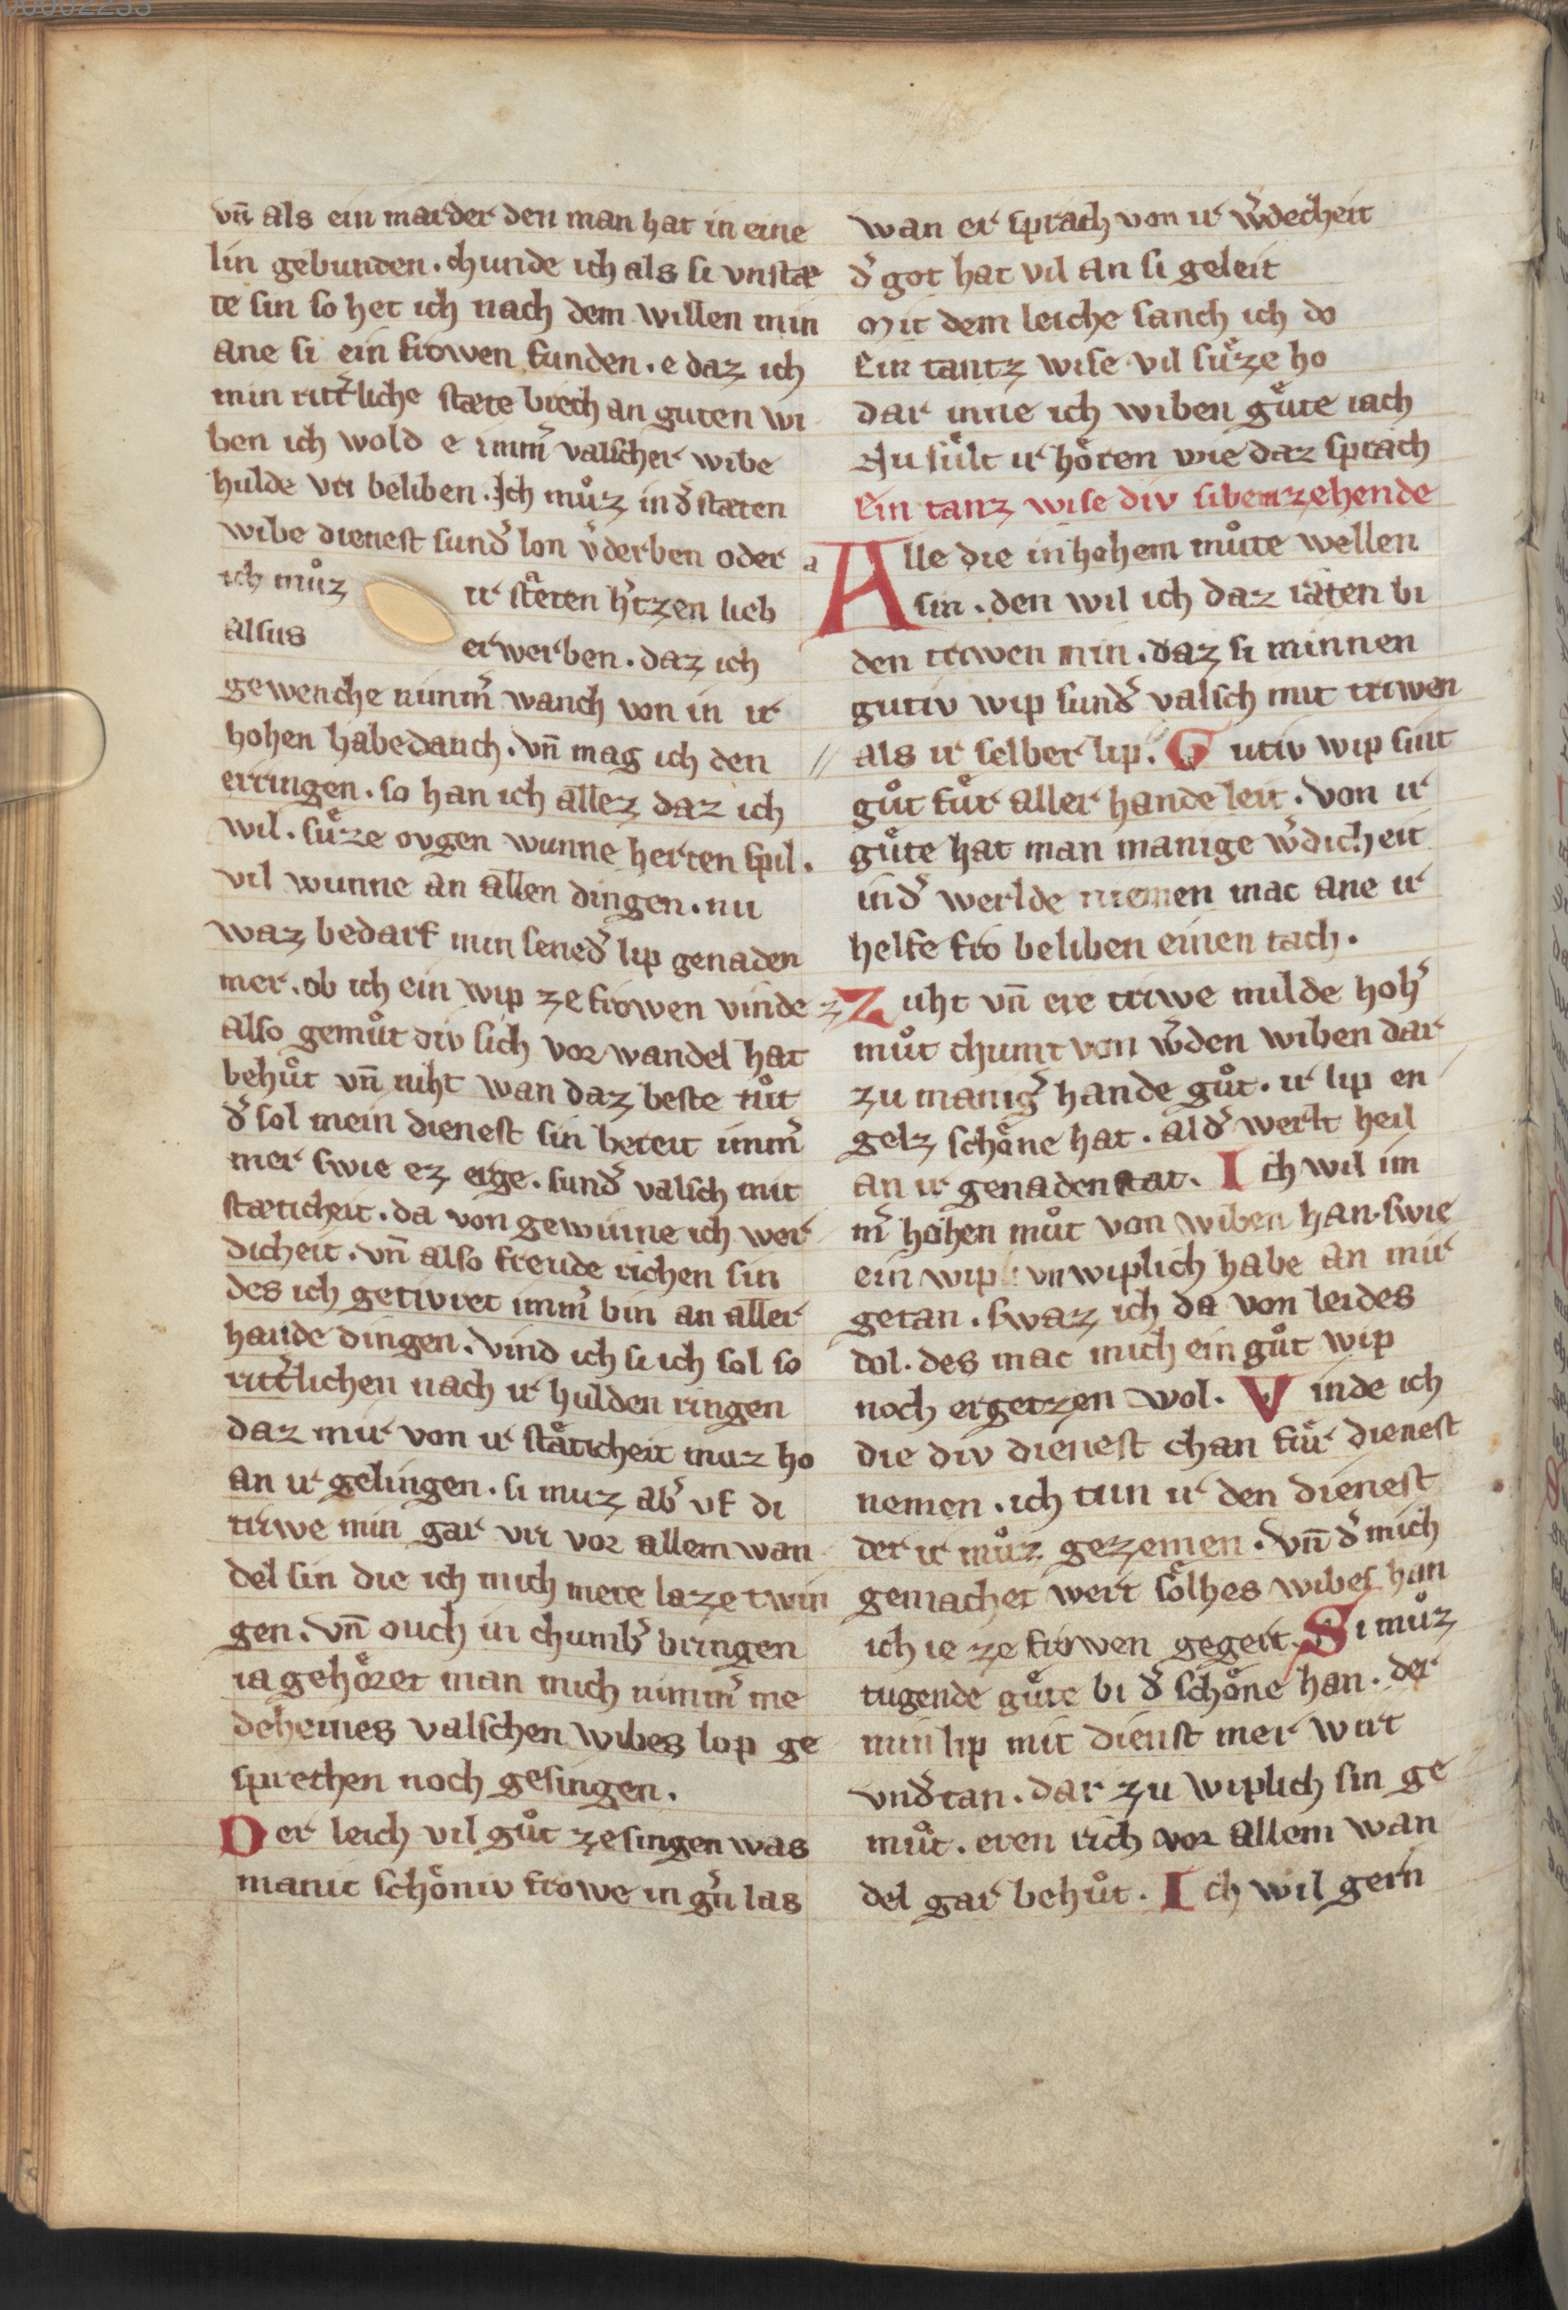 00002233
vn̄ als ein marder den man hat in eine
lin gebunden. chunde ich als si vnstæ
te sin so het ich nach dem willen min
ane si ein frowen funden. e daz ich
min ritt͛liche stæte brech an guten wi
ben ich wold e imm͛ valscher wibe
hulde vri beliben. Ich muͦz in d͛ stæten
wibe dienest sund͛ lon v͛derben oder
ich muͦz ir stæten h͛tzen lieb
alsus erwerben. daz ich
gewenche nimm͛ wanch von in ir
hohen habedanch. vn̄ mag ich den
erringen. so han ich allez daz ich
wil. suͤze ovgen wunne herten spil.
vil wunne an allen dingen. nu
waz bedarf min sened͛ lip genaden
mer. ob ich ein wip ze frowen vinde
also gemuͦt div sich vor wandel hat
behuͦt vn̄ niht wan daz beste tuͦt
d͛ sol mein dienest sin bereit imm͛
mer swie ez erge. sund͛ valsch mit
stæticheit. da von gewinne ich wer
dicheit. vn̄ also freude richen sin
des ich getivret imm͛ bin an aller
hande dingen. vind ich si ich sol so
ritt͛lichen nach ir hulden ringen
daz mir von ir stæticheit muz ho
an ir gelingen. si muz ab͛ vf di
triwe min gar vri vor allem wan
del sin die ich mich mere laze twin
gen. vn̄ ouch in chumb͛ bringen
ia gehoͤret man mich nimm͛ me
deheines valschen wibes lop ge
sprechen noch gesingen.
Der leich vil guͦt ze singen was
manic schoͤniv frowe in g͛n las
wan er sprach von ir w͛decheit
d͛ got hat vil an si geleit
Mit dem leiche sanch ich do
Ein tantz wise vil suͤze ho
dar inne ich wiben guͤte iach
Nu suͤlt ir hoͤren wie daz sprach
Ein tanz wise div sibenzehende
a Alle die in hohem muͦte wellen
sin. den wil ich daz raten bi
den triwen min. daz si minnen
gutiv wip sund͛ valsch mit triwen
als ir selber lip. Gutiv wip sint
guͦt fuͤr aller hande leit. von ir
guͤte hat man manige w͛dicheit
in d͛ werlde niemen mac ane ir
helfe fro beliben einen tach.
z Zuht vn̄ ere triwe milde hoh͛
muͦt chumt von w͛den wiben dar
zu manig͛ hande guͦt. ir lip en
gelz schoͤne hat. al d͛ werlt heil
an ir genaden stat. Ich wil im
m͛ hohen muͦt von wiben han. swie
ein wip vnwiplich habe an mir
getan. swaz ich da von leides
dol. des mac mich ein guͦt wip
noch ergetzen wol. Vinde ich
die div dienest chan fuͤr dienest
nemen. ich tun ir den dienest
der ir muͦz gezemen. vn̄ d͛ mich
gemachet wert soͤlhes wibes han
ich ie ze frowen gegert. Si muͦz
tugende guͤte bi d͛ schoͤne han. der
min lip mit dienst mer wirt
vnd͛tan. dar zu wiplich sin ge
muͦt. eren rich vor allem wan
del gar behuͦt. Ich wil gern